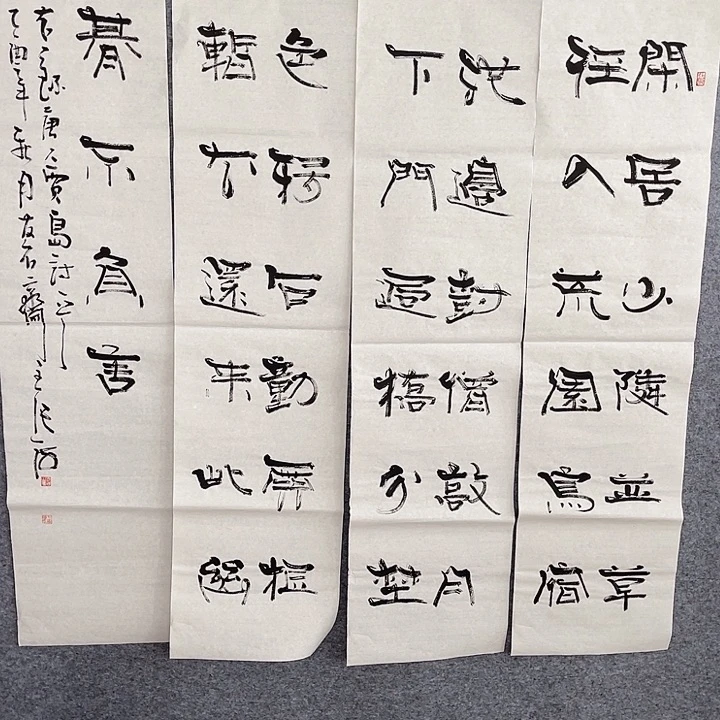 閑居少隣並草
徑入荒園鳥宿
池邊樹僧敲月
下門過橋分埜
色移石動雲根
暫去還来此幽
朞不負言
唐人賈島詩
乙酉年 月 石齋主